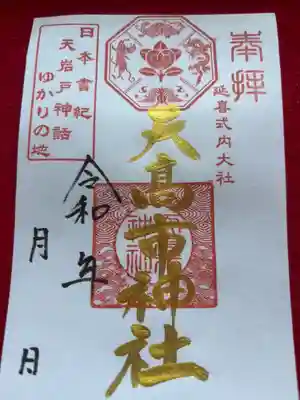 奉拝
延喜式内大社
天高市神社
日本書紀
天岩戸神話
ゆかりの地
令和 年
月 日